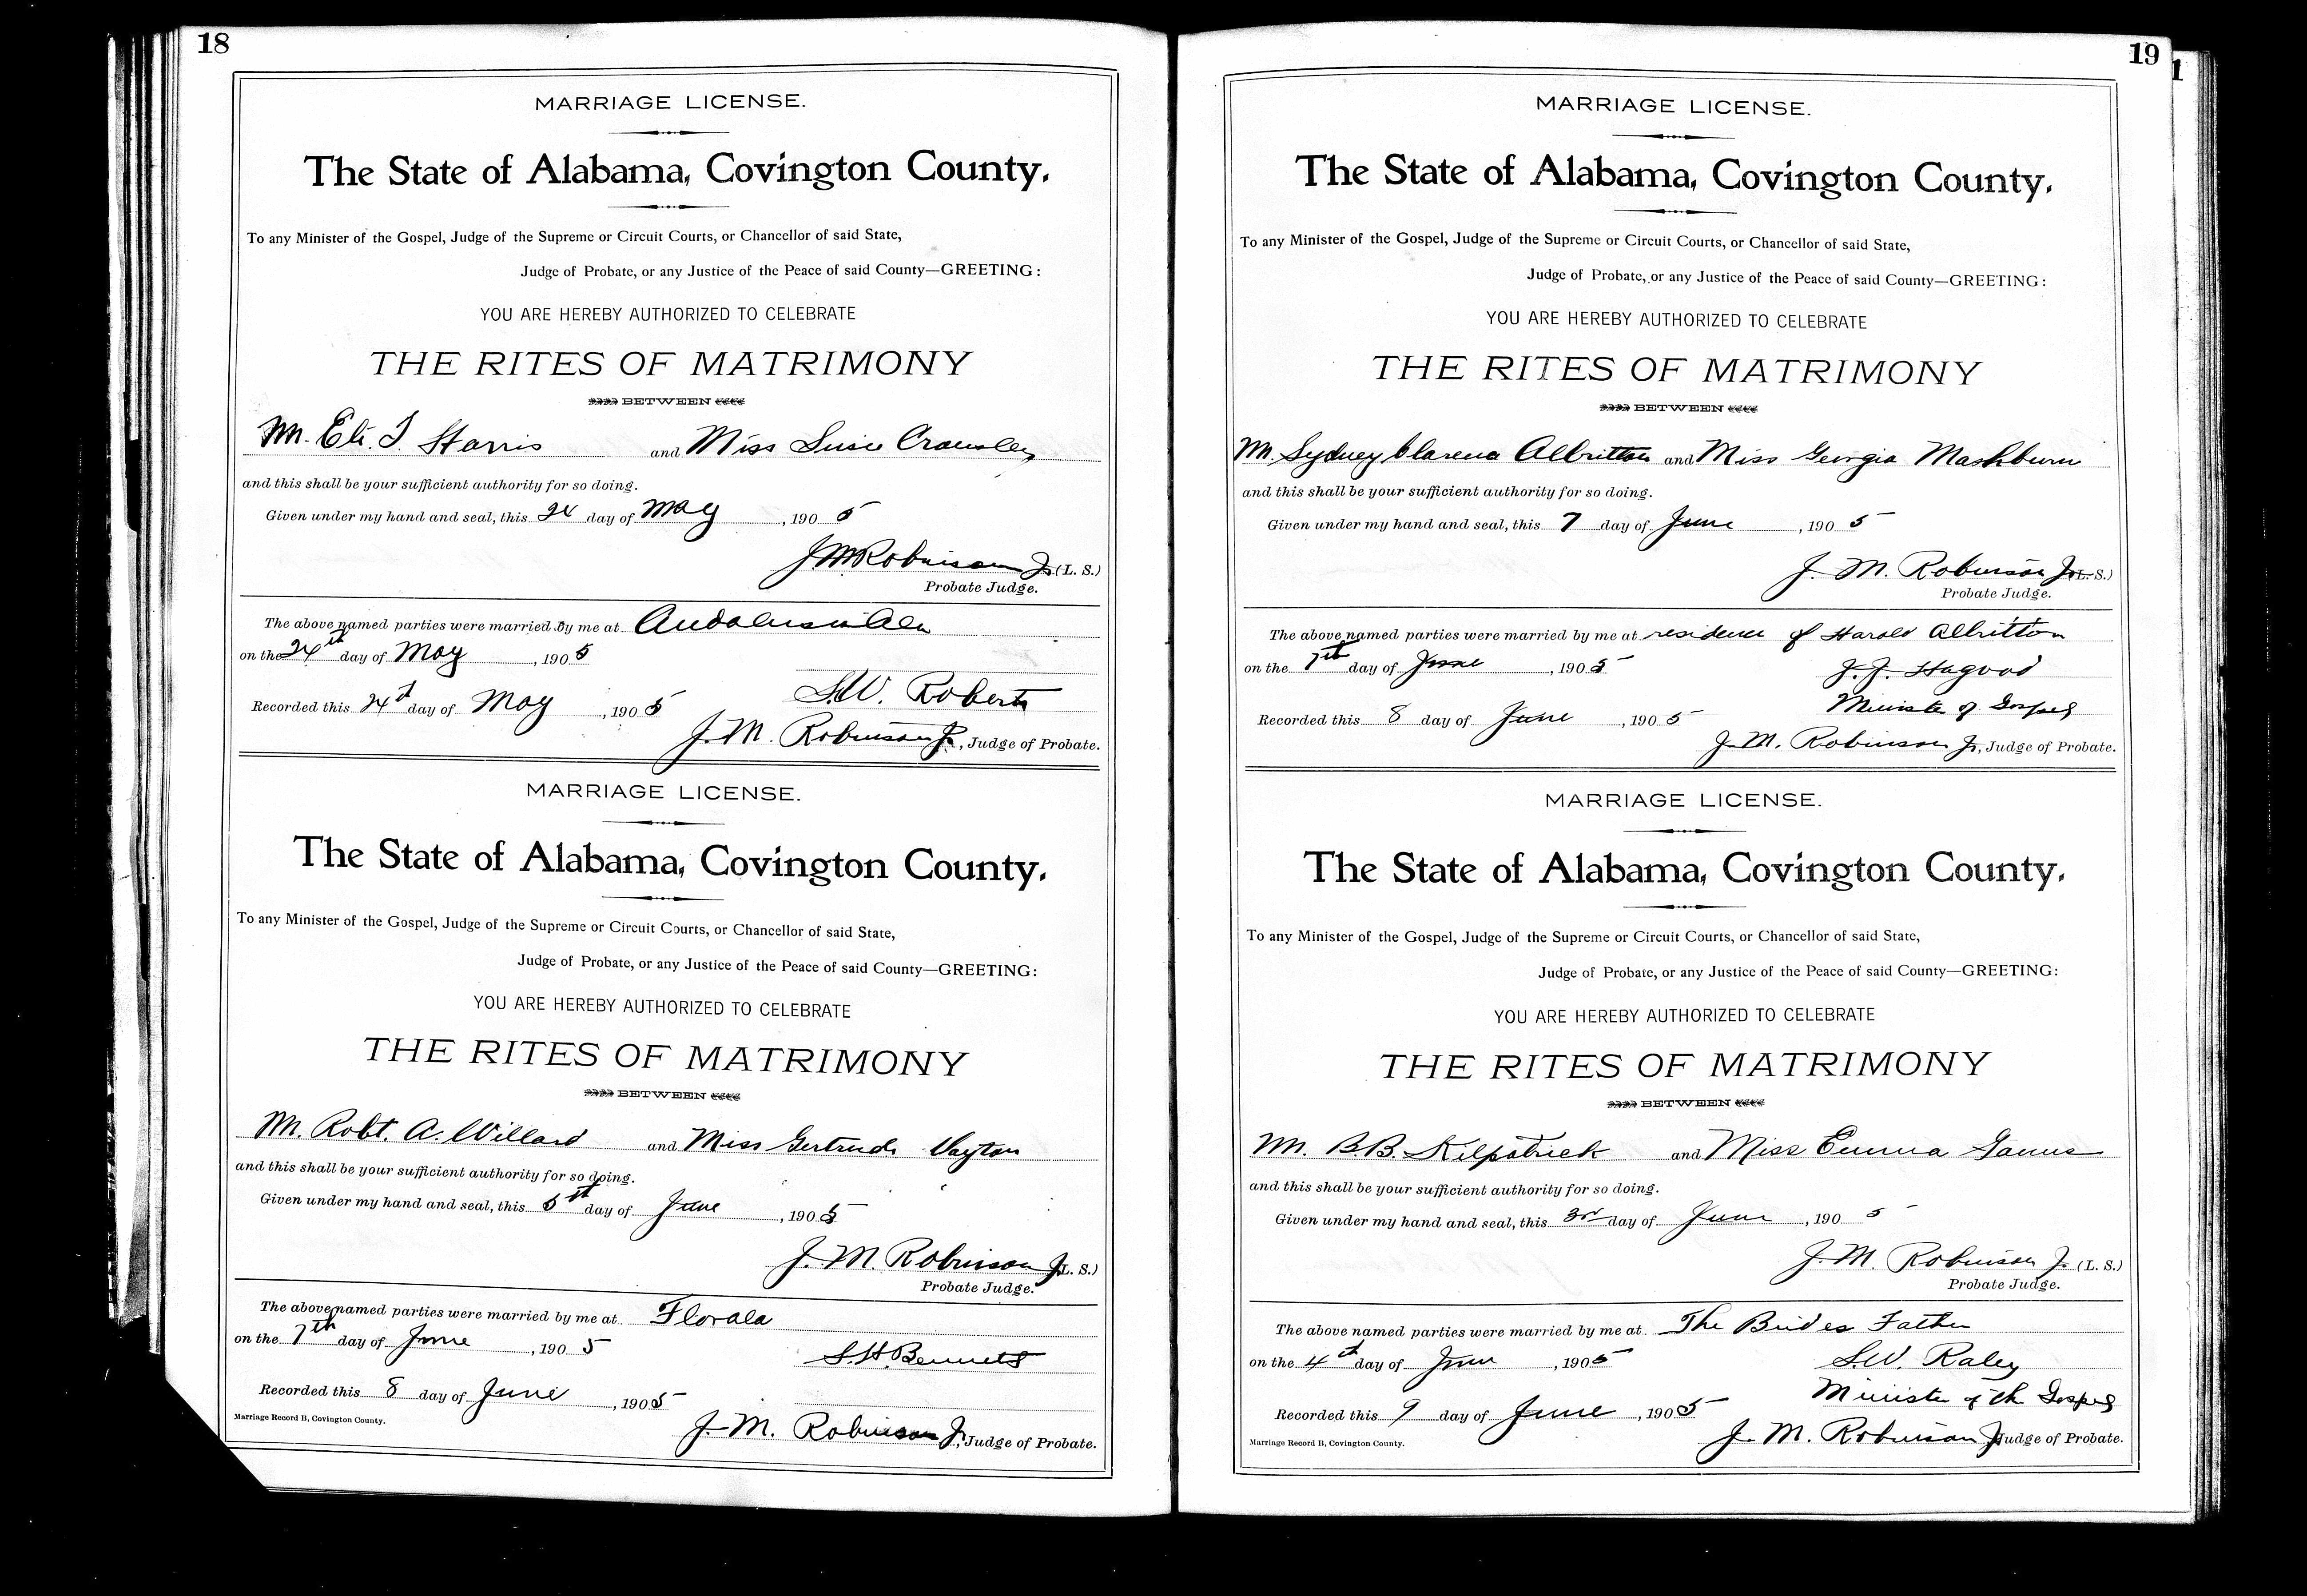 18
MARRIAGE LICENSE.
The State of Alabama, Covington County.
To any Minister of the Gospel, Judge of the Supreme or Circuit Courts, or Chancellor of said State,
Judge of Probate, or any Justice of the Peace of said County—GREETING:
YOU ARE HEREBY AUTHORIZED TO CELEBRATE
THE RITES OF MATRIMONY
BETWEEN
Mr. Eli. T. Harris and Miss Susie
and this shall be your sufficient authority for so doing.
Given under my hand and seal, this 24 day of May, 1905
J. M. Robinson Jr. (L. S.)
Probate Judge.
The above named parties were married by me at Andalusia Ala
on the 24th day of May, 1905
S.W. Roberts
Recorded this 24th day of May, 1905
J. M. Robinson Jr., Judge of Probate.
MARRIAGE LICENSE.
The State of Alabama, Covington County.
To any Minister of the Gospel, Judge of the Supreme or Circuit Courts, or Chancellor of said State,
Judge of Probate, or any Justice of the Peace of said County—GREETING:
YOU ARE HEREBY AUTHORIZED TO CELEBRATE
THE RITES OF MATRIMONY
BETWEEN
Mr. Robt. A. Willard and Miss Gertrude Vayton
and this shall be your sufficient authority for so doing.
Given under my hand and seal, this 5th day of June, 1905
J. M. Robinson Jr. (L. S.)
Probate Judge.
The above named parties were married by me at Florala
on the 7th day of June, 1905
S.H. Bennett
Recorded this 8 day of June, 1905
Marriage Record B, Covington County.
J. M. Robinson Jr., Judge of Probate.
19
1
MARRIAGE LICENSE.
The State of Alabama, Covington County.
To any Minister of the Gospel, Judge of the Supreme or Circuit Courts, or Chancellor of said State,
Judge of Probate, or any Justice of the Peace of said County—GREETING:
YOU ARE HEREBY AUTHORIZED TO CELEBRATE
THE RITES OF MATRIMONY
BETWEEN
Mr. Sydney Clarence Albritton and Miss Georgia Mashburn
and this shall be your sufficient authority for so doing.
Given under my hand and seal, this 7 day of June, 1905
J. M. Robinson Jr. (L. S.)
Probate Judge.
The above named parties were married by me at residence of Harold Albritton
on the 7th day of June, 1905
J. J. Hagood
Minister of Gospel
Recorded this 8 day of June, 1905
J. M. Robinson Jr, Judge of Probate.
MARRIAGE LICENSE.
The State of Alabama, Covington County.
To any Minister of the Gospel, Judge of the Supreme or Circuit Courts, or Chancellor of said State,
Judge of Probate, or any Justice of the Peace of said County—GREETING:
YOU ARE HEREBY AUTHORIZED TO CELEBRATE
THE RITES OF MATRIMONY
BETWEEN
Mr. B.B. Kilpatrick and Miss Emma Gantt
and this shall be your sufficient authority for so doing.
Given under my hand and seal, this 3rd day of June, 1905
J. M. Robinson Jr. (L. S.)
Probate Judge.
The above named parties were married by me at The Brides Father
on the 4th day of June, 1905
S.W. Raley
Minister of the Gospel
Recorded this 9 day of June, 1905
Marriage Record B, Covington County.
J. M. Robinson Jr Judge of Probate.